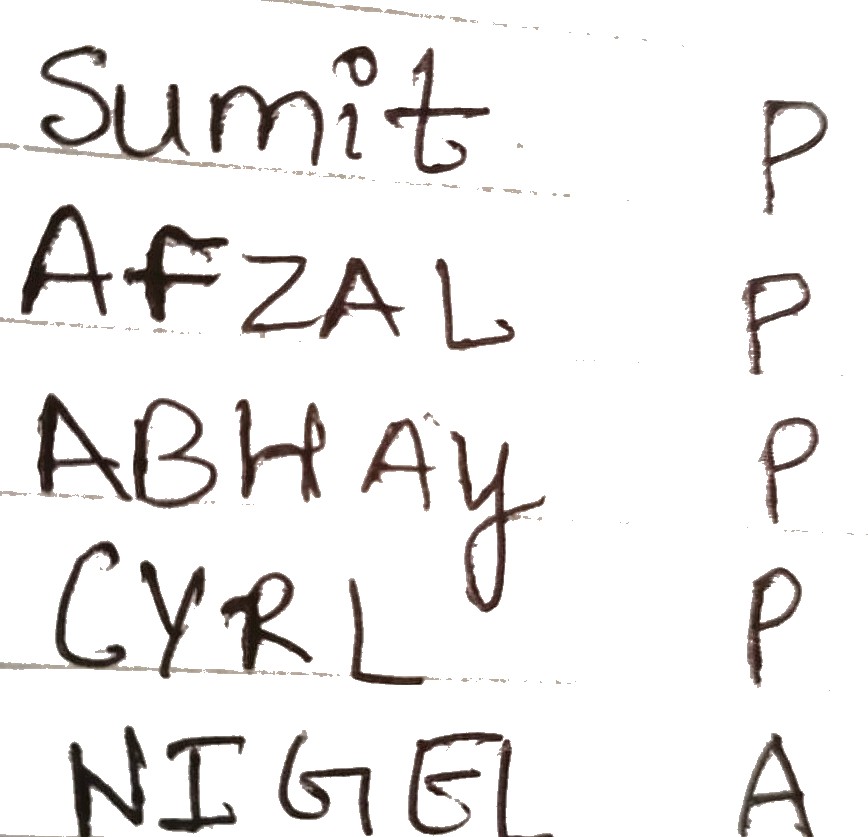 Sumit P
AFZAL P
ABHAY P
CYRL P
NIGEL A